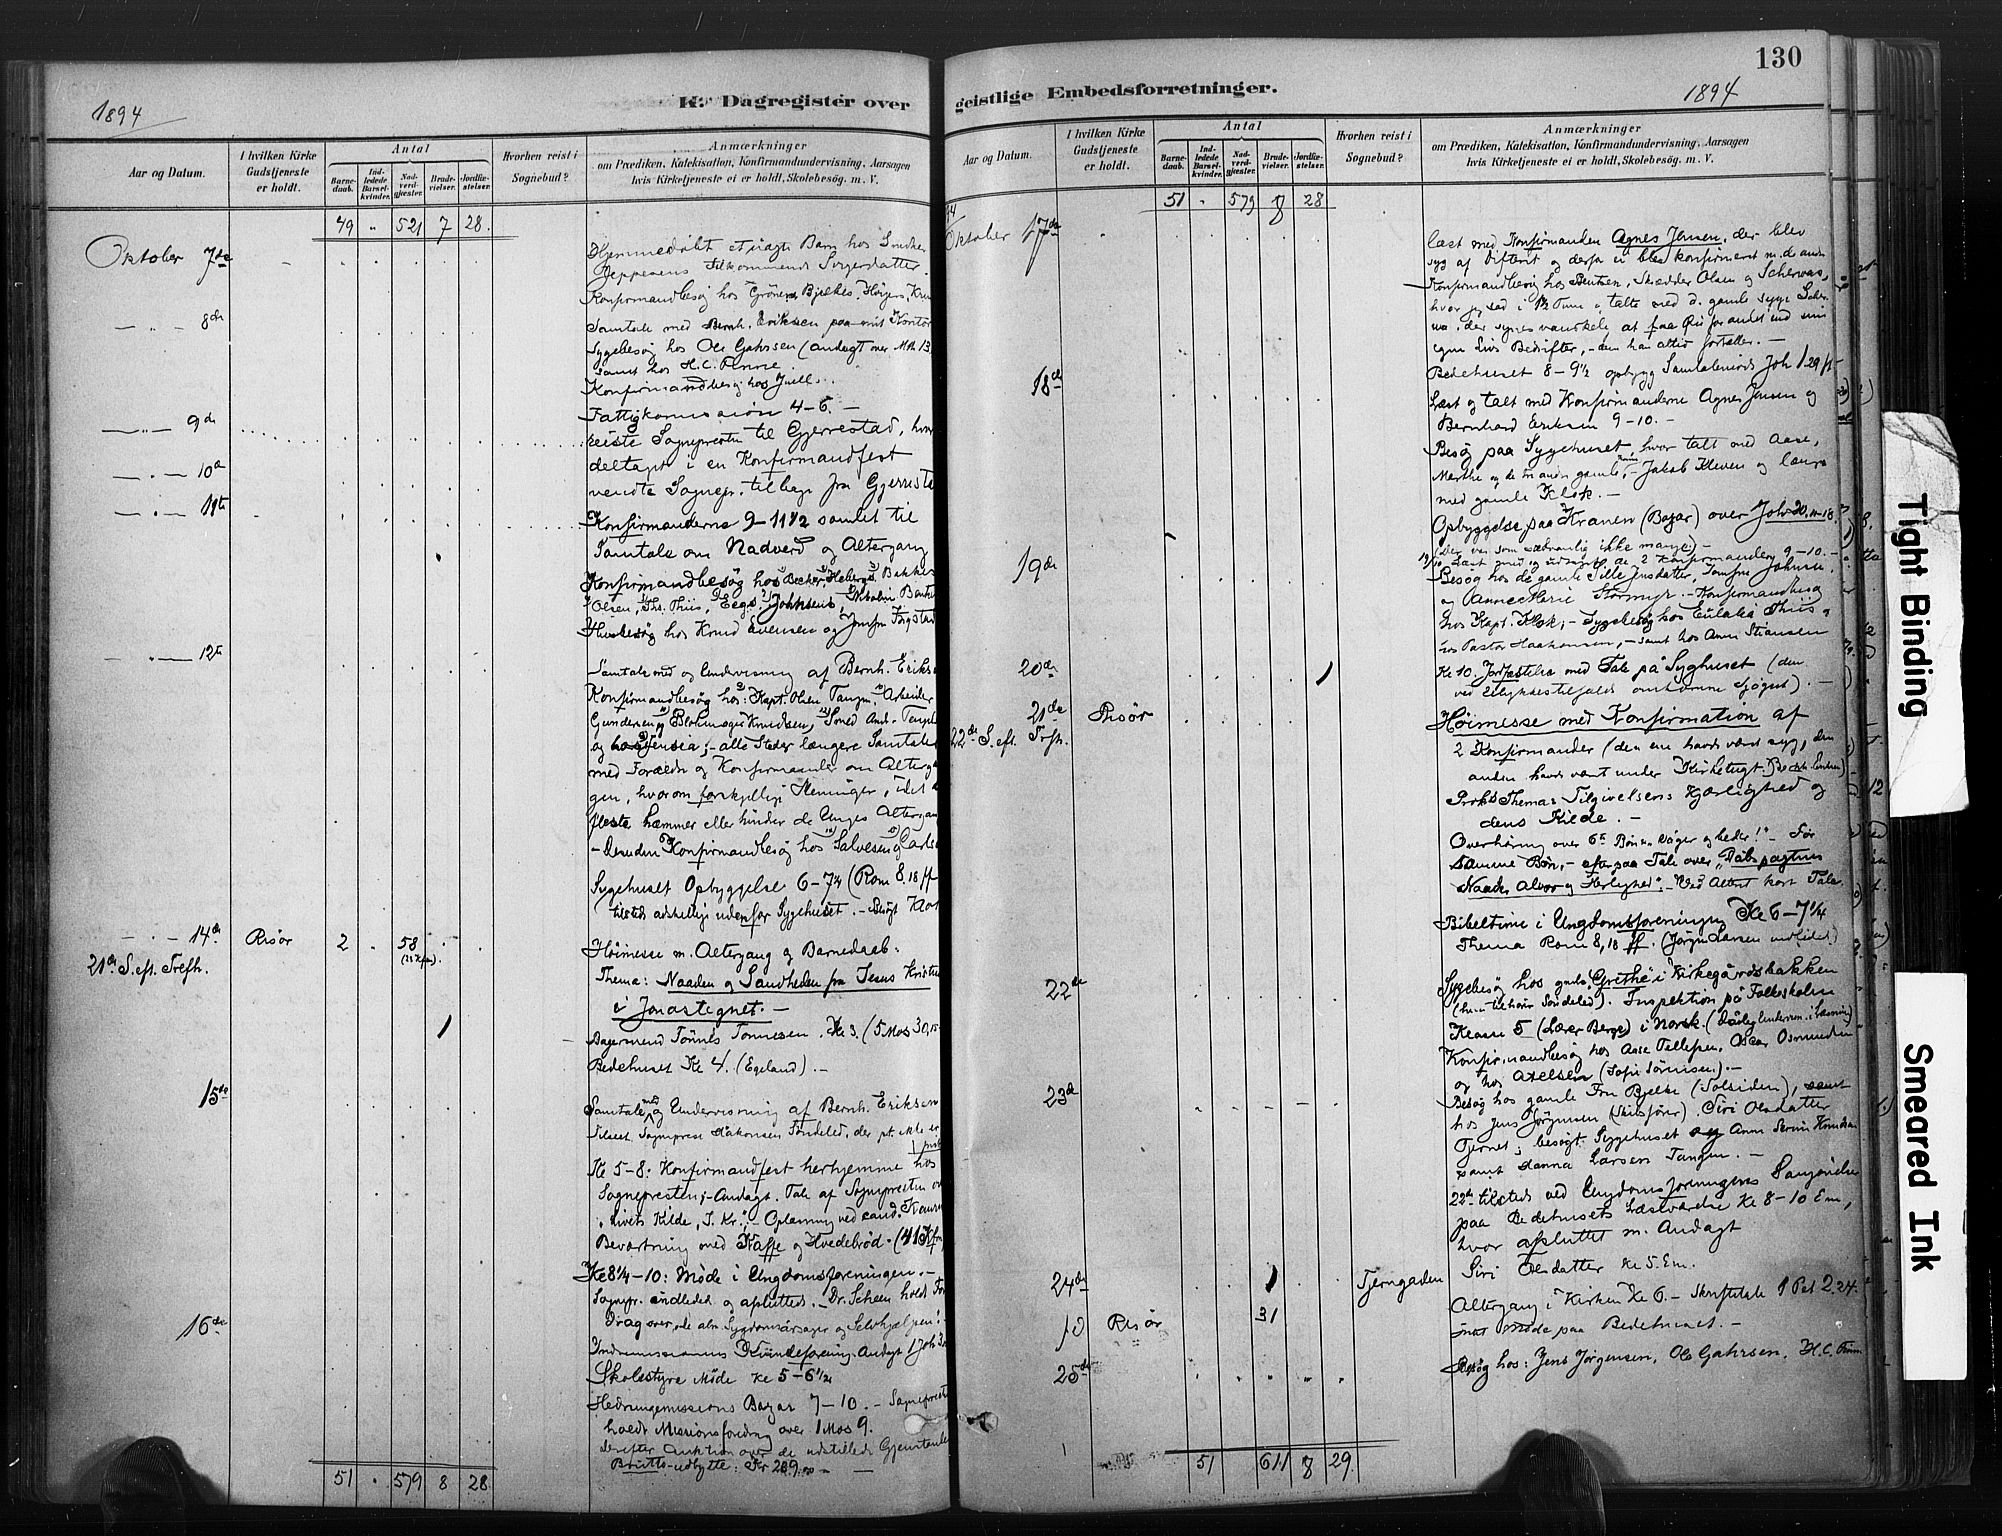 1894
K. Dagregister over
Aar og Datum.
I hvilken Kirke Gudstjeneste er holdt.
Antal
Barnedaab.
Indledede Barselkvinder.
Nadverdgjæster.
Brudevielser.
Jordfæstelser.
Hvorhen reist i Sognebud?
Anmærkninger
om Prædiken, Katekisation, Konfirmandundervisning, Aarsagen
hvis Kirketjeneste ei er holdt, Skolebesög. m. V.
49 " 521 7 28.
Oktober 7de
Hjemmedøbt et Barn hos
Jeppesens
Konfirmandbesøg hos
8de
Samtale med Bernh. Eriksen paa mit Kontor
Sygebesøg hos Ole Gahrsen (andagt over Mth 13
samt hos H.C. Finne
Konfirmandbesøg hos Juell.
Fattigkomission 4-6. —
9de
reiste Sognepresten til Gjerrestad, hvor
deltaget i en Konfirmandfest
10de
vendte Sognepr. tilbage fra Gjerrest
11te
Konfirmanderne 9-11 1/2 samlet til
Samtale om Nadverd og Altergang
Konfirmandbesøg hos
Olsen, Ths. Thiis, Johnsens,
Husbesøg hos Knud Evensen og
12te
Samtale med og Undervisning af Bernh. Eriks
Konfirmandbesøg hos: Kapt. Olsen Tangen, Arbeider
Gundersen, Knudsen,
og Jensia; - alle Steder længere Samtale
med Foreldre og Konfirmander om Alterga
gen, hvorom forskjellige Meninger, idet
fleste hæmmer eller hinder de Unges Altergan
- Desuden Konfirmandbesøg hos Salvesen og Carls
Sygehuset Opbyggelse 6-7 1/4 (Rom 8, 18 ff
tilsted adskellige udenfor Sygehuset. - Besøgt
14de Risør 2 . 58
21de S. eft. Trefh.
Høimesse m. Altergang og Barnedaab:
Thema: Naaden og Sandheden fra Jesus Krist
i Jonastegnet. —
Tønnes Tønnesen. Kl 3. (5 Mos 30, 15
Bedehuset Kl 4. (Egeland). —
15de
Samtale med og Undervisning af Bernh. Eriksen
Tilseet Sognepræst Håkonsen Søndeled, der pt. ikke er
Kl 5-8: Konfirmandfest herhjemme hos
Sognepresten; - Andagt. Tale af Sognepresten
Livets Kilde, J. Kr.; - Oplæsning ved cand.
Bevertning med Kaffe og Hvedebrød. - (41 Kfm
Kl 8 1/4-10: Møde i Ungdomsforeningen. -
Sognepr. indledet og afsluttet. - Dr. Scheen holdt For
drag over, de alm. Sygdomsårsager og Selvhjælpen".
16de
Indremissionens Kvindeforening. Andagt 1 Joh 3
Skolestyre Møde Kl 5-6 1/2
Hedningemissions Bazar 7-10. - Sognepræst
holdt Missionsforedrag over 1 Mos 9.
Derefter Auktion over de udstillede Gjenstande
Brutto-udbytte: Kr 289.00
51 . 579 8 28
130
1894
geistlige Embedsforretninger.
Aar og Datum.
I hvilken Kirke Gudstjeneste er holdt.
Antal
Barnedaab.
Indledede Barselkvinder.
Nadverdgjæster.
Brudevielser.
Jordfæstelser.
Hvorhen reist i Sognebud?
Anmærkninger
om Prædiken, Katekisation, Konfirmandundervisning, Aarsagen
hvis Kirketjeneste ei er holdt, Skolebesög. m. V.
51 - 579 8 28
Oktober 17de
læst med Konfirmanden Agnes Jensen, der blev
syg af Difterit og derfor ei blev konfirmeret m. de andre
Konfirmandbesøg hos Bentsen, Skrædder Olsen og
hvor jeg sad i 1 1/2 Time og talte med d. gamle syge
der synes vanskelig at faa Øie for andet end sine
egne Livs Bedrifter, - dem han altid fortæller. —
Bedehuset 8-9 1/2 opbygg Samtalemøde Joh 1. 29 ff
18de
Læst og talt med Konfirmanderne Agnes Jensen og
Bernhard Eriksen 9-10. -
Besøg paa Sygehuset hvor talt med Aase,
Marthe og de andre gamle, - Jakob Kleven og længe
med gamle Klok. -
Opbyggelse paa Kranen (Bazar) over Joh 20. 11-18.
(Der var som sædvanlig ikke mange). -
19de
Læst med og udspurgt de 2 Konfirmander 9-10. -
Besøg hos de gamle Sille Jensdatter, Jomfru Johnsen,
og Anne Marie Stormyr. - Konfirmandbesøg
hos Kapt. Klok; - Sygebesøg hos Eulalia Thiis og
hos Pastor Haakonsen, - samt hos Anne Stiansen
20de
Kl 10 Jordfæstelse med Tale på Syghuset (den
ved Ulykkestilfælde omkomne Sjøgut). —
21de Risør
22de S. eft. Trefh.
Høimesse med Konfirmation af
2 Konfirmander (den ene havde været syg, den
anden havde været under Kirketugt.
Thema: Tilgivelsens Kjærlighed og
dens Kilde. —
Overhøring over 6te Bøn " Våger og beder!" - Før
samme Bøn, - efterpaa Tale over „Dåbspagtens
Naade, Alvor og Herlighed". - Ved Alteret kort Tale.
Bibeltime i Ungdomsforeningen Kl 6-7 1/4
Thema Rom 8, 18 ff. (Jørgen Larsen indledet)
22de
Sygebesøg hos gamle Grethe i Kirkegårdsbakken
(hun tilhører Søndeled). Inspektion på Folkeskolen
Klasse 5 (Lærer Berge) i Norsk.
Konfirmandbesøg hos Aase Tellefsen, Oscar Osmundsen
og hos Axelsen (Sofie Sørensen). —
23de
Besøg hos gamle Fru Bjelke (Solsiden), samt
hos Jens Jørgensen (Skibsfører). Siri Olsdatter
Tjernet; besøgt Sygehuset og Anne Serine Knudsen
samt Hanna Larsen Tangen. —
22de tilstede ved Ungdomsforeningens Sangøvelse
paa Bedehusets Læseværelse Kl 8-10 Em,
hvor afsluttet m. Andagt
24de 1 Tjerngaden
Siri Olsdatter Kl 5 Em.
Risør 31
Altergang i Kirken Kl 6. - Skriftetale 1 Pet 2. 24.
Møde paa Bedehuset. -
25de
Besøg hos: Jens Jørgensen, Ole Gahrsen, H.C. Finne
51 611 8 29.
Tight Binding
Smeared Ink